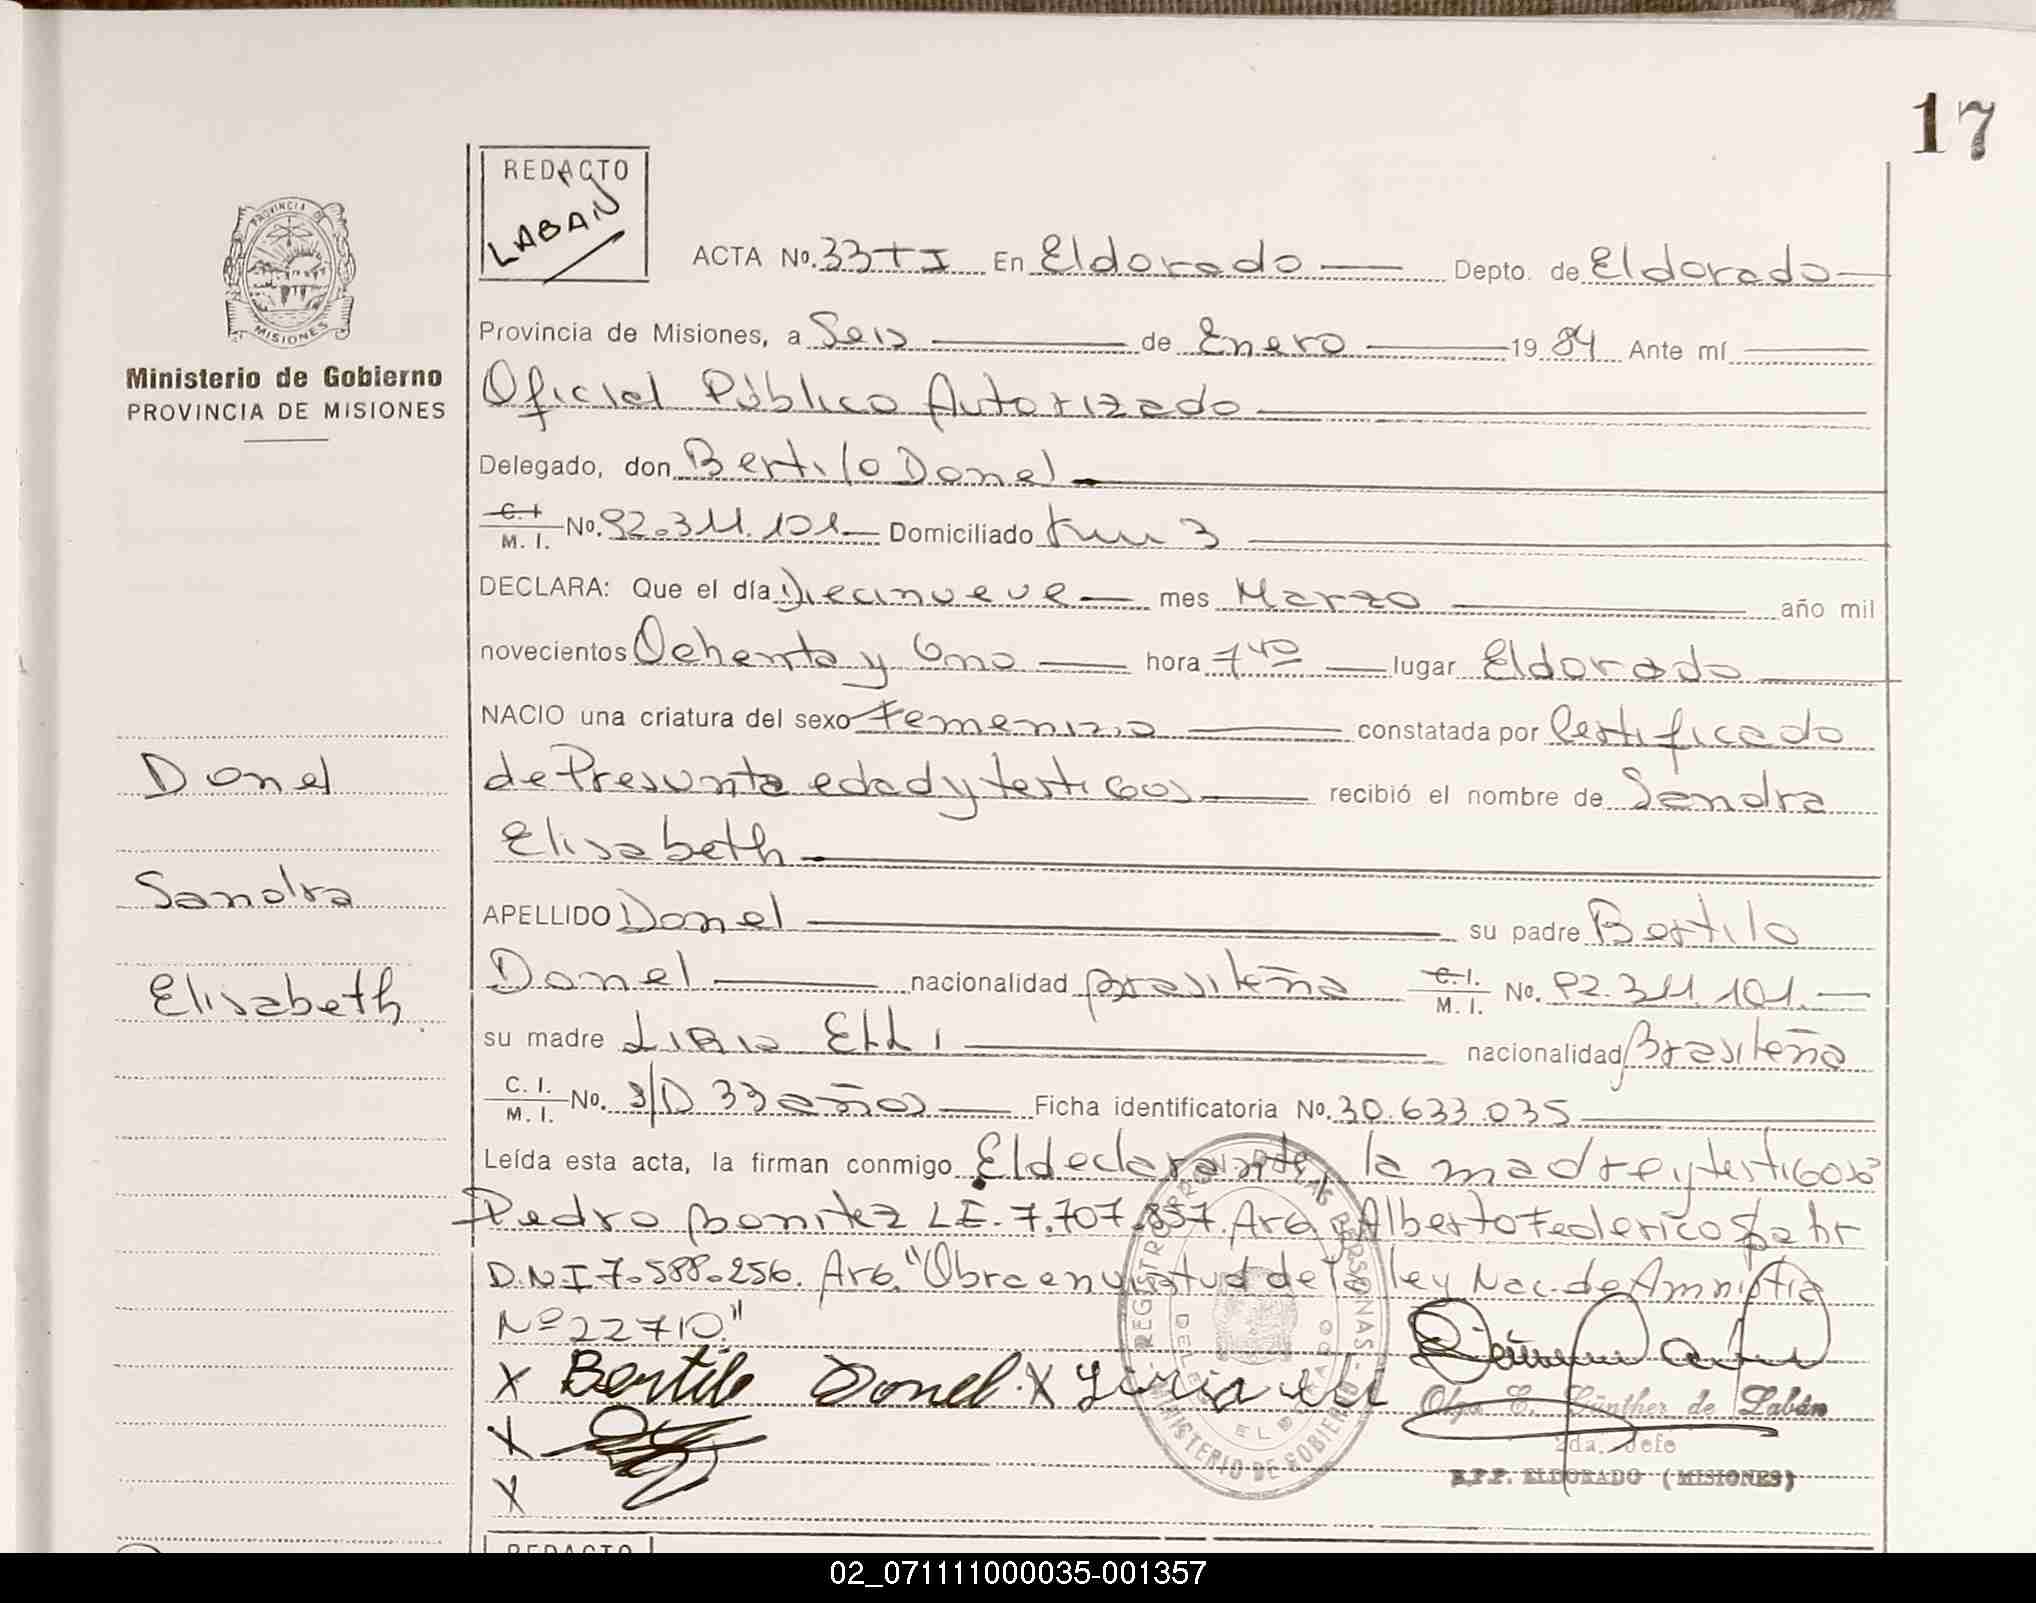 17
REDACTO
LABAN
PROVINCIA DE
MISIONES
Ministerio de Gobierno
PROVINCIA DE MISIONES
Donel
Sandra
Elisabeth
ACTA No. 33 T I En Eldorado Depto. de Eldorado
Provincia de Misiones, a Seis de Enero 1984 Ante mí
Oficial Público Autorizado
Delegado, don Bertilo Donel
C. I. M. I. No. 92.311.101 Domiciliado Km 3
DECLARA: Que el día Diecinueve mes Marzo año mil
novecientos Ochenta y Uno hora 7 40 lugar Eldorado
NACIO una criatura del sexo Femenino constatada por Certificado
de Presunta edad y testigos recibió el nombre de Sandra
Elisabeth
APELLIDO Donel su padre Bertilo
Donel nacionalidad Brasileña C. I. M. I. No. 92.311.101.
su madre Liria Elli nacionalidad Brasileña
C. I. M. I. No. S/D 33 años Ficha identificatoria No. 30.633.035
Leída esta acta, la firman conmigo El declarante, la madre y testigos
Pedro Bonitez LE. 7.707.857. Arg. Alberto Federico Spahr
D.N.I 7.588.256. Arg. "Obra en virtud de la ley Nac. de Amnistia
Nº 22710"
X Bertilo Donel X Liria Elli
X
X
Olga E. Günther de Labán
2da. Jefe
R.P.P. ELDORADO (MISIONES)
REGISTRO PROV. DE LAS PERSONAS
MINISTERIO DE GOBIERNO
ELDORADO
REDACTO
02_071111000035-001357